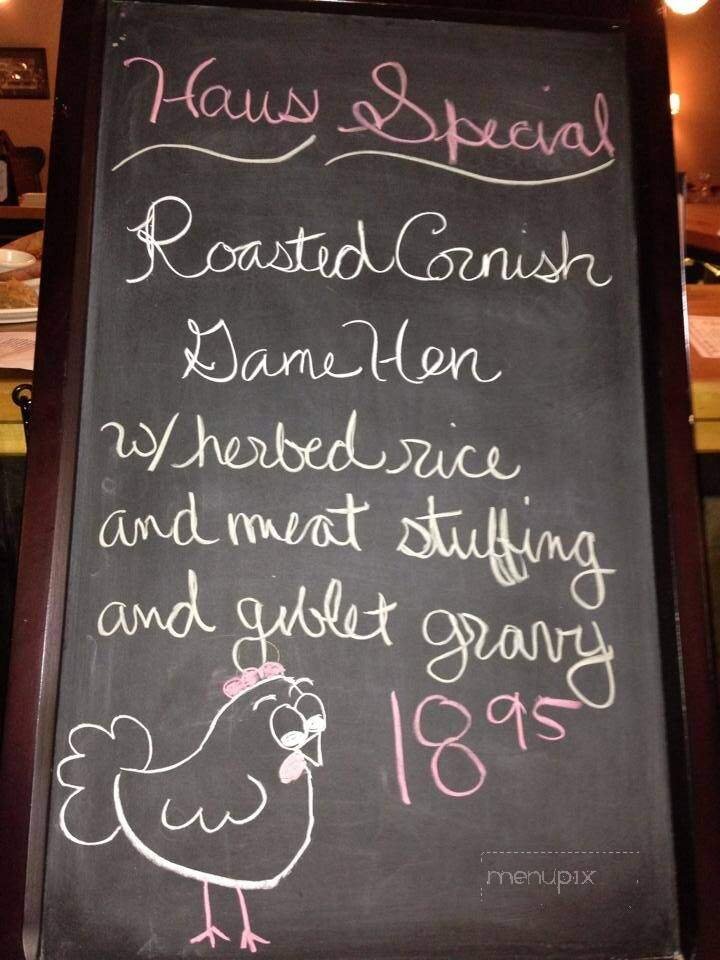 Haus Special
Roasted Cornish
Game Hen
w/ herbed rice
and meat stuffing
and giblet gravy
18 95
menupix